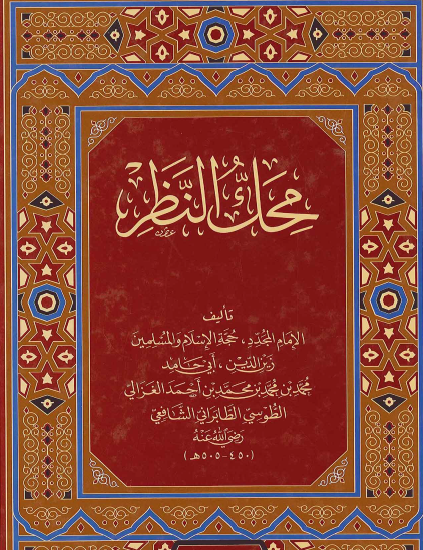 مِحَكُّ النَّظَرِ
تأليف
الإمَامِ المُجَدِّدِ، حُجَّةِ الإِسْلَامِ وَالمُسْلِمِينَ
زَيْنِ الدِّينِ، أَبِي حَامِد
مُحَمَّدِ بْنِ مُحَمَّدِ بْنِ مُحَمَّدِ بْنِ أَحْمَدَ الغَزَالِيِّ
الطُّوسِيِّ الطَّابَرَانِيِّ الشَّافِعِيِّ
رَضِيَ اللهُ عَنْهُ
(٤٥٠-٥٠٥هـ)